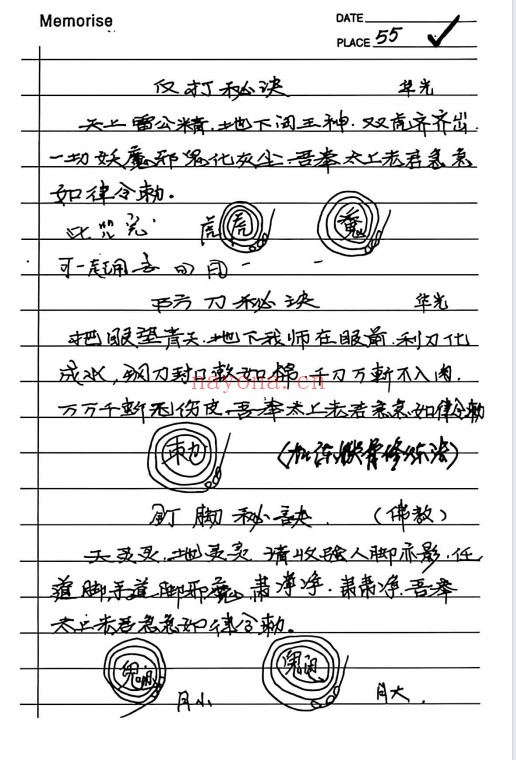 Memorise
DATE
PLACE 55
打秘决 华光
天上雷公精.地下闭王神.双虎齐齐出.
一切妖魔邪鬼化灰尘.吾奉太上老君急急
如律令勅。
此咒 虎 虎 魔
可一起用
刀秘决 华光
把眼望青天.地下我师在眼前.利刀化
成水,钢刀封口软如棉.千刀万斬不入肉.
万万千斬无伤皮.吾奉太上老君急急如律令勅
nayona.cn
勅
釘脚秘訣. (佛教)
天灵灵.地灵灵 请收 人脚亦影.任
脚 道脚邪魔 肃净净.肃肃净.吾奉
太上老君急急如律令勅。
月小 月大.